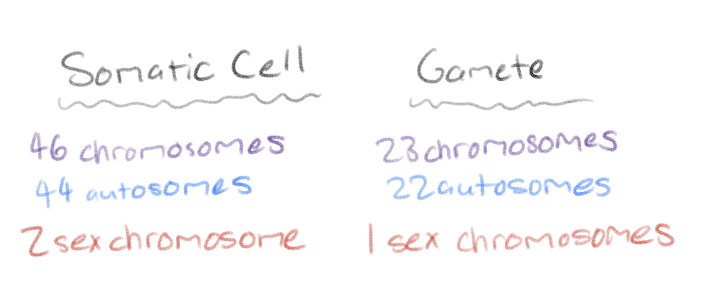 Somatic Cell
46 chromosomes
44 autosomes
2 sex chromosome
Gamete
23 chromosomes
22 autosomes
1 sex chromosomes